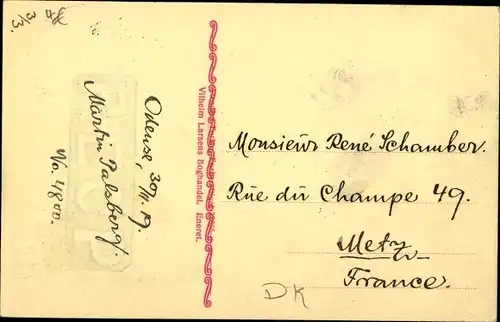 Odense, 30/11.19.
Martin Palsberg.
No. 4800.
Vilhelm Larsens Boghandel. Eneret.
Monsieur René Schamber.
Rue du Champe 49.
Metz
France.
DK